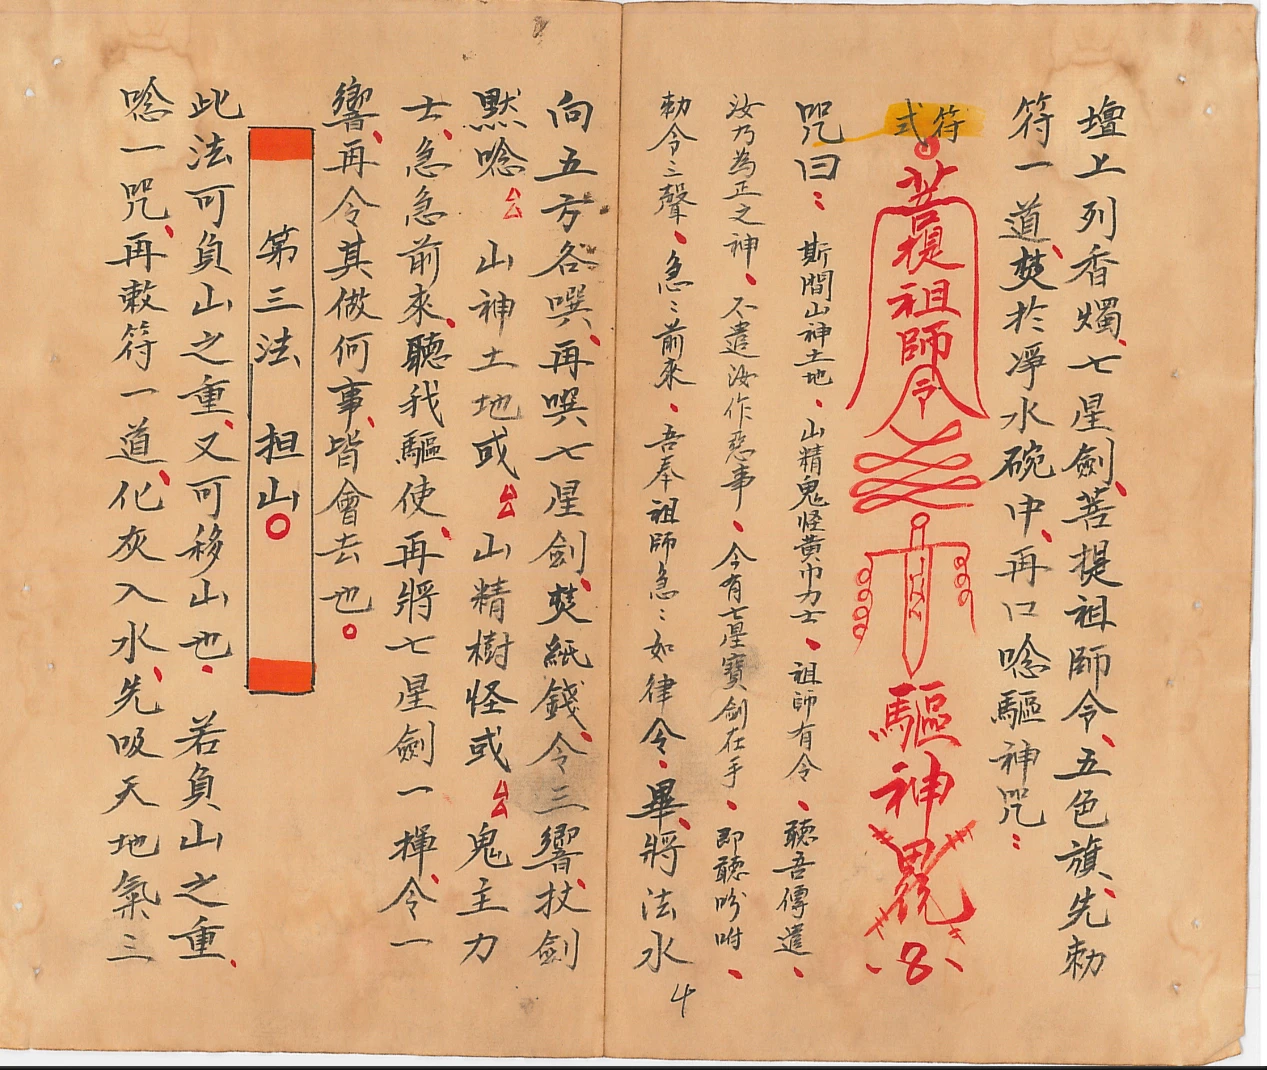 壇上列香燭、七星劍、菩提祖師令、五色旗、先勅
符一道、焚於凈水碗中、再口唸驅神咒：
符式
菩提祖師令
驅神
咒曰：斯間山神土地、山精鬼怪黃巾力士、祖師有令、聽吾傳遣、
汝乃為正之神、不遣汝作惡事、今有七星寶劍在手、即聽吩咐、
勅令三聲、急〻前來、吾奉祖師急〻如律令、畢、將法水
4
向五方各噀、再噀七星劍、焚紙錢、令三響、杖劍
默唸 山神土地或 山精樹怪或 鬼主力
士、急急前來、聽我驅使、再將七星劍一揮、令一
響、再令其做何事、皆會去也。
第三法 担山
此法可負山之重、又可移山也、若負山之重、
唸一咒、再敕符一道、化灰入水、先吸天地氣三